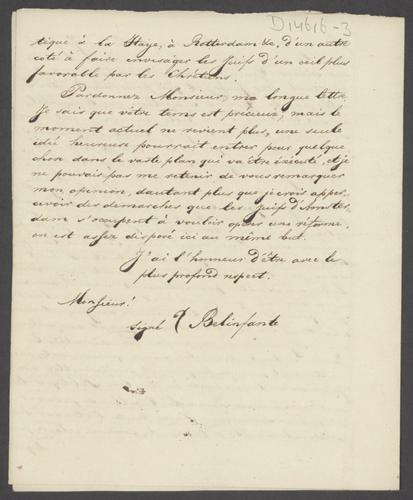 D14616-3
tique à la Haye, à Rotterdam &c, d'un autre
coté à faire envisager les Juifs d'un œil plus
favorable par les Chrétiens.
Pardonnez Monsieur, ma longue lettre
Je sais que vôtre tems est précieux, mais le
moment actuel ne revient plus, une seule
idée heureuse pourrait entrer pour quelque
chose dans le vaste plan qui va être exécuté, et je
ne pouvais pas me retenir de vous remarquer
mon opinion, dautant plus que je crois apper
cevoir des demarches que les Juifs d'Amster
dam s'occupent à vouloir opérer une réforme,
on est assez disposé ici au même but.
J'ai l'honneur d'être avec le
plus profond respect.
Monsieur!
signé Belinfante